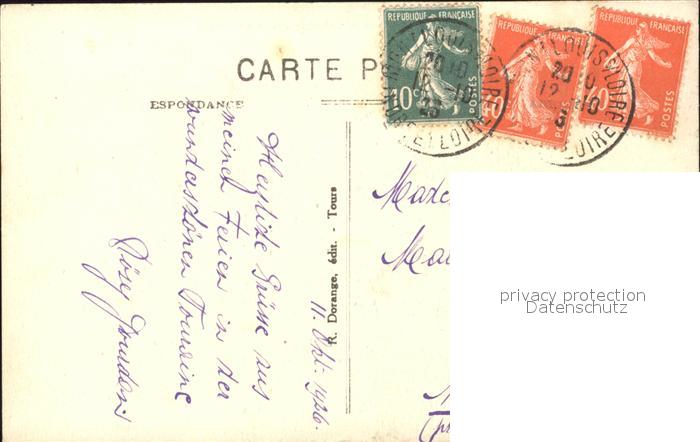 CARTE P
ESPONDANCE
REPUBLIQUE FRANÇAISE
10c
POSTES
REPUBLIQUE FRANÇAISE
POSTES
REPUBLIQUE FRANÇAISE
POSTES
R. Dorange, édit. - Tours
11. Okt. 1926.
Herzliche Grüsse aus
meinen Ferien in der
wunderschönen Touraine
Rösy
privacy protection
Datenschutz